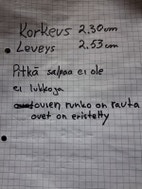 Korkeus 2.30 cm
Leveys 2.53 cm
Pitkä salpaa ei ole
ei lukkoja
ovien runko on rauta
ovet on eristetty